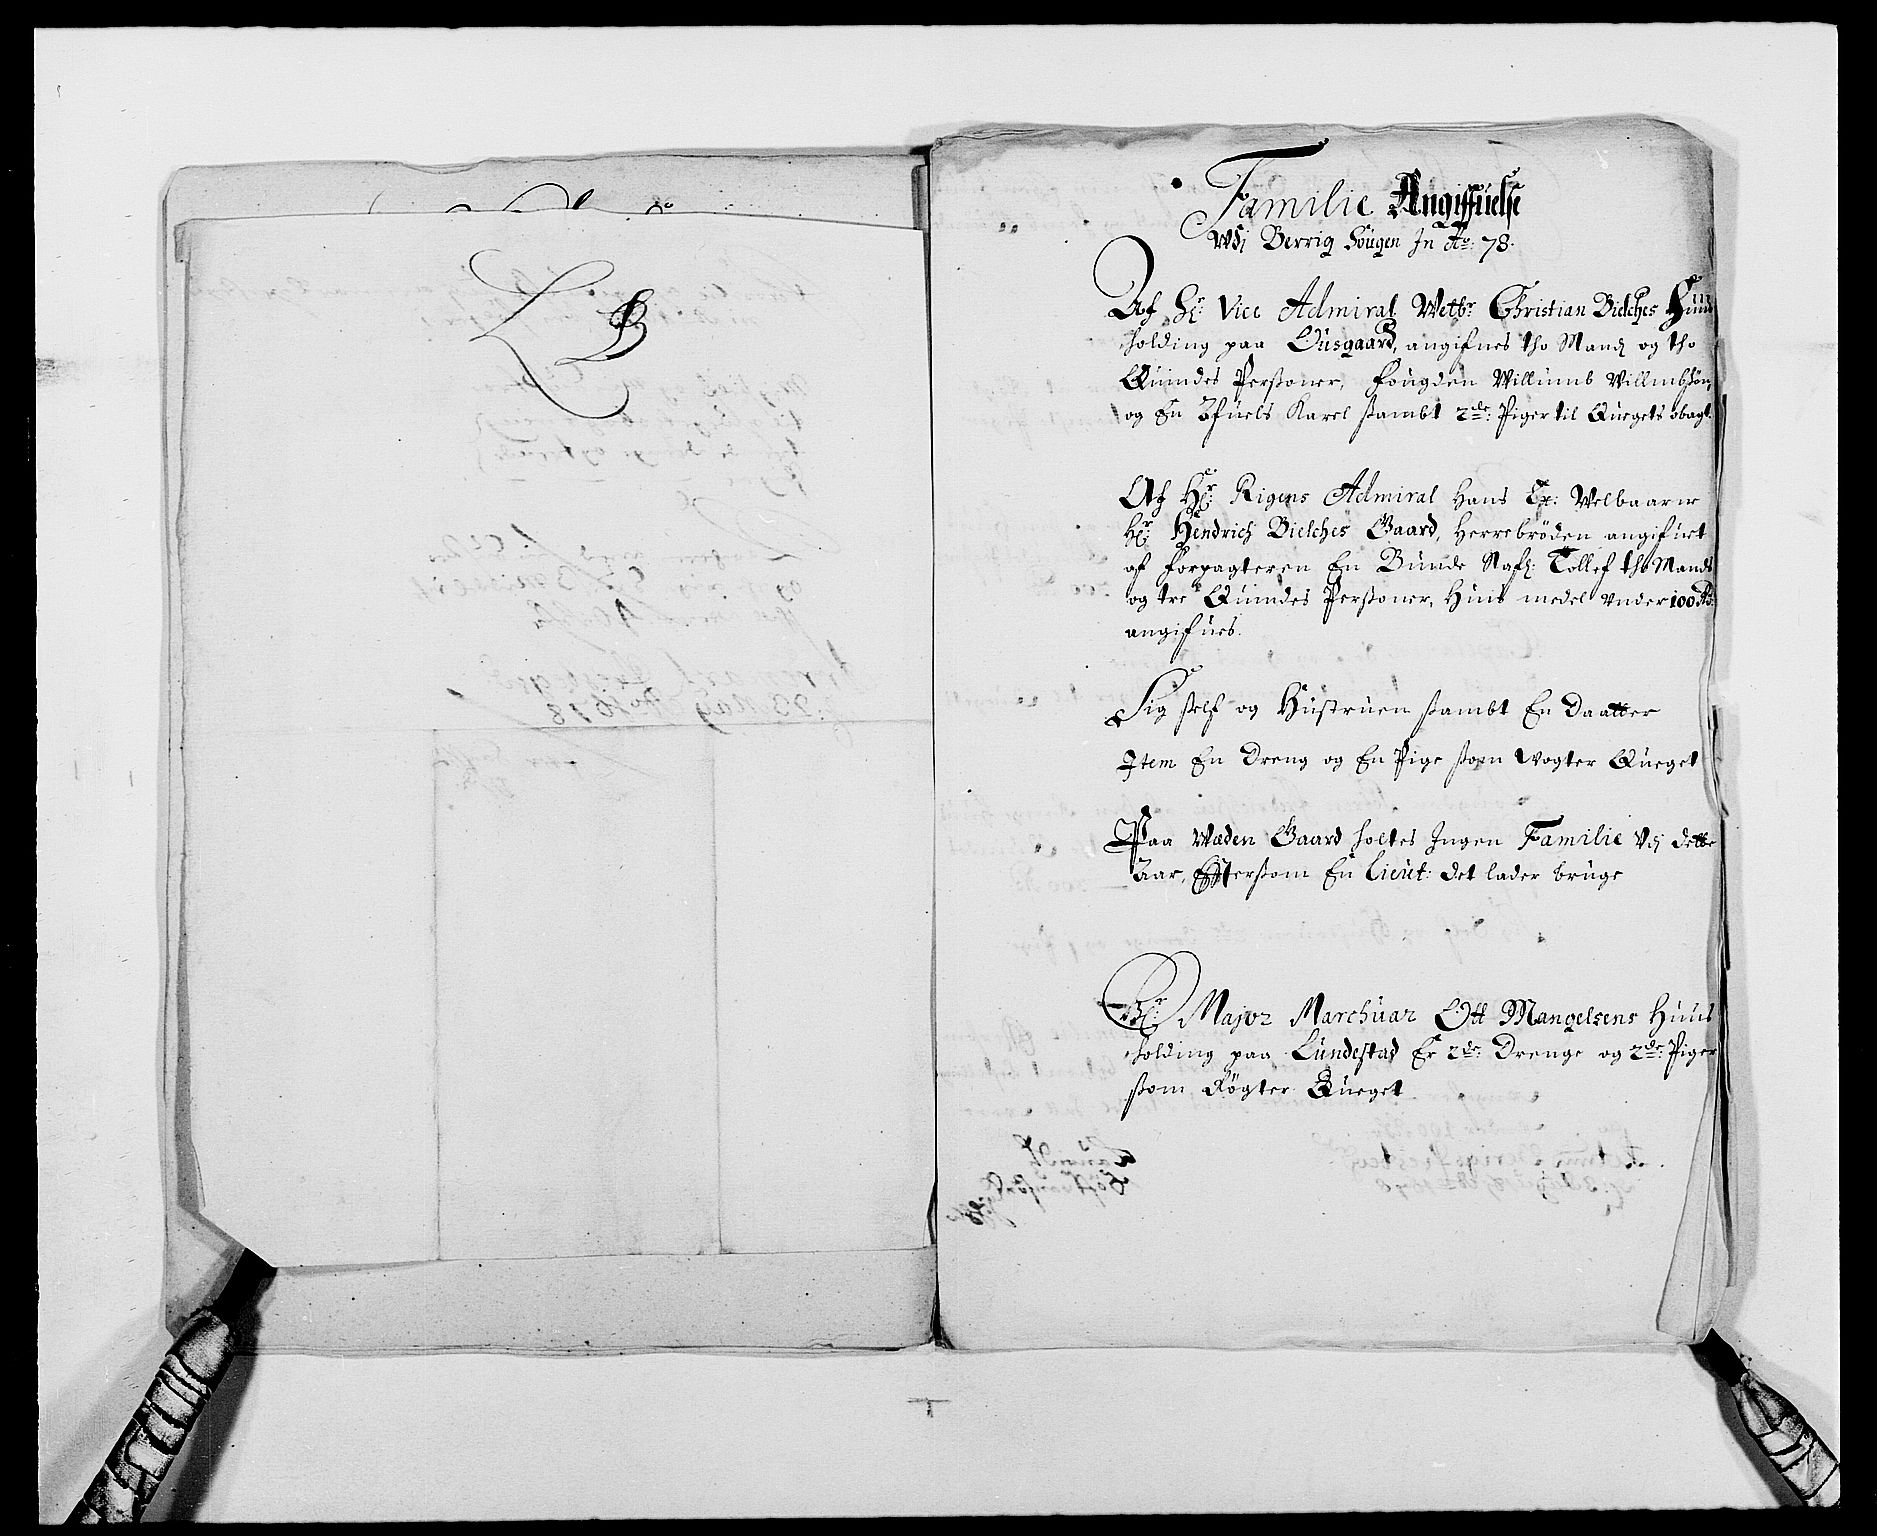 L B
Familie Angiffuelse
Wdj Berrig Sougen Jn Ao: 78.
Af Hr: Vice Admiral Welbr: Christian Bielches Huus
holding paa Ousgaard, angifues tho Mand og tho
Quindes Perßoner, fougden Willumb Willumbßøn,
og En Afuels Karel sambt 2de: Piger til Quegets obagt.
Af Hr: Rigens Admiral Hans Ex: Velbaarne
Hr: Hendrich Bielches Gaard, Herrebröden angifuet
af Forpagteren En Bunde Nafl: Tollef tho Mands
og tre Quindes Perßoner, Huis medel Vnder 100 Rd:
angifues.
Sig self og Hustruen sambt En Daatter
Item En Dreng og En Pige ßom Wogter Queget
Paa Wæden Gaard holtes Ingen Familie Vdj dette
Aar, Efftersom En Lieut: det lader bruge
Hr: Major Marchuar Ott Mangelsens Huus
holding paa Lundestad Er 2de: Drenge og 2de: Piger
ßom Rögter Queget